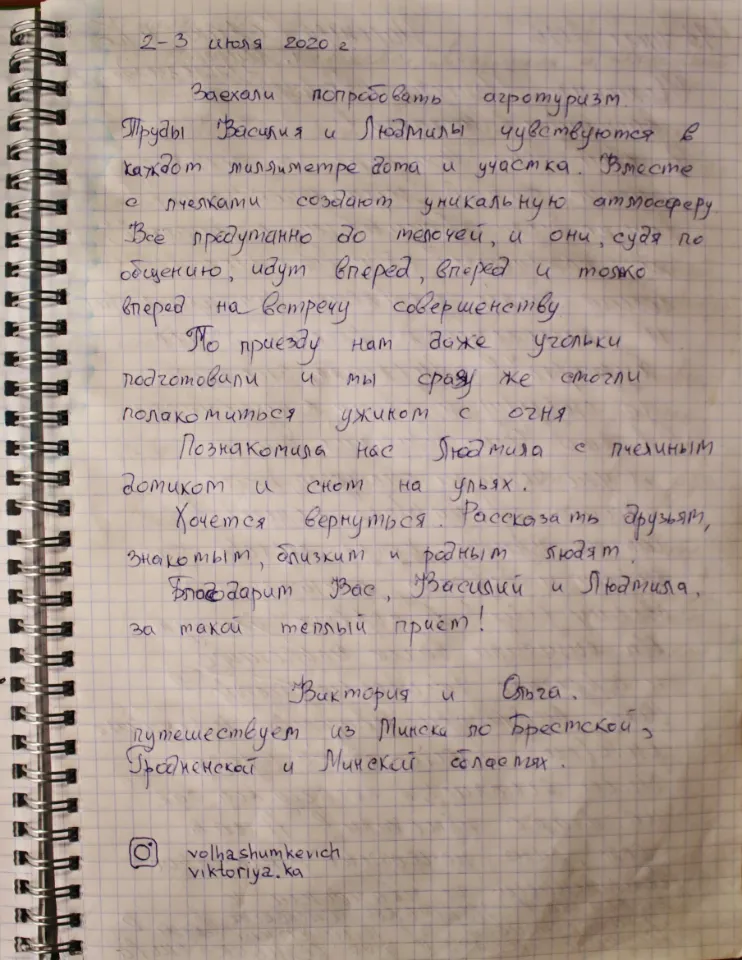 2-3 июля 2020 г
Заехали попробовать агротуризм.
Труды Василия и Людмилы чувствуются в
каждом миллиметре дома и участка. Вместе
с пчелками создают уникальную атмосферу.
Всё продуманно до мелочей, и они, судя по
общению, идут вперед, вперед и только
вперед на встречу совершенству
По приезду нам даже угольки
подготовили и мы сразу же смогли
полакомиться ужином с огня
Познакомила нас Людмила с пчелиным
домиком и сном на ульях.
Хочется вернуться. Рассказать друзьям,
знакомым, близким и родным людям.
Благодарим Вас, Василий и Людмила,
за такой теплый приём!
Виктория и Ольга.
путешествуем из Минска по Брестской,
Гродненской и Минской областях.
volhashumkevich
viktoriya.ka